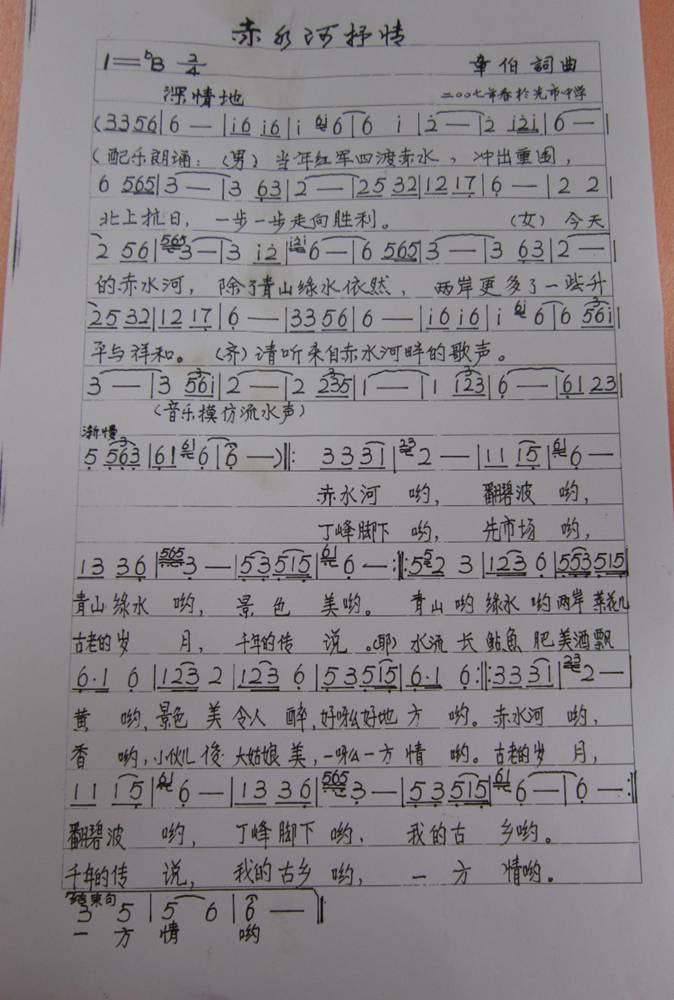 赤水河抒情
1=bB 2/4
章伯詞曲
深情地
二〇〇七年春於先市中学
(3356|6 —|i6 i6|i 6|6 i|2 —|2 i2i|6 —|
(配乐朗诵：(男) 当年红军四渡赤水，冲出重围，
6 565|3 —|3 63|2 —|25 32|12 17|6 —|2 2|
北上抗日，一步一步走向胜利。 (女) 今天
2 56|565 3 —|3 i2|i2i 6 —|6 565|3 —|3 63|2 —|
的赤水河，除了青山绿水依然，两岸更多了一些升
25 32|12 17|6 —|33 56|6 —|i6 i6|i 6|6 56i|
平与祥和。(齐)请听来自赤水河畔的歌声。
3 —|3 56i|2 —|2 235|1 —|1 123|6 —|61 23|
(音乐模仿流水声)
渐慢
5 563|61 61 6|6 —)‖: 33 31|23 2 —|11 15|61 6 —|
赤水河 哟， 翻碧波 哟，
丁峰脚下 哟， 先市场 哟，
13 36|565 3 —|53 515|61 6 — :‖: 5 5 2 3|123 6|553 515|
青山绿水 哟， 景色 美哟。 青山哟绿水哟两岸菜花儿
古老的岁 月， 千年的传 说。(耶)水流长鲇魚肥美酒飘
6·1 6|123 2|123 6|53 515|6·1 6 :‖: 33 31|23 2 —|
黄 哟，景色美令人醉，好呀么好地方 哟。赤水河 哟，
香 哟，小伙儿俊大姑娘美，一呀么一方情 哟。古老的岁 月，
11 15|61 6 —|13 36|565 3 —|53 515|61 6 —|6 — :‖
翻碧波 哟， 丁峰脚下哟， 我的古 乡哟。
千年的传 说， 我的古乡 哟， 一 方 情哟。
结束句
3 5|5 6|6 —‖
一 方 情 哟